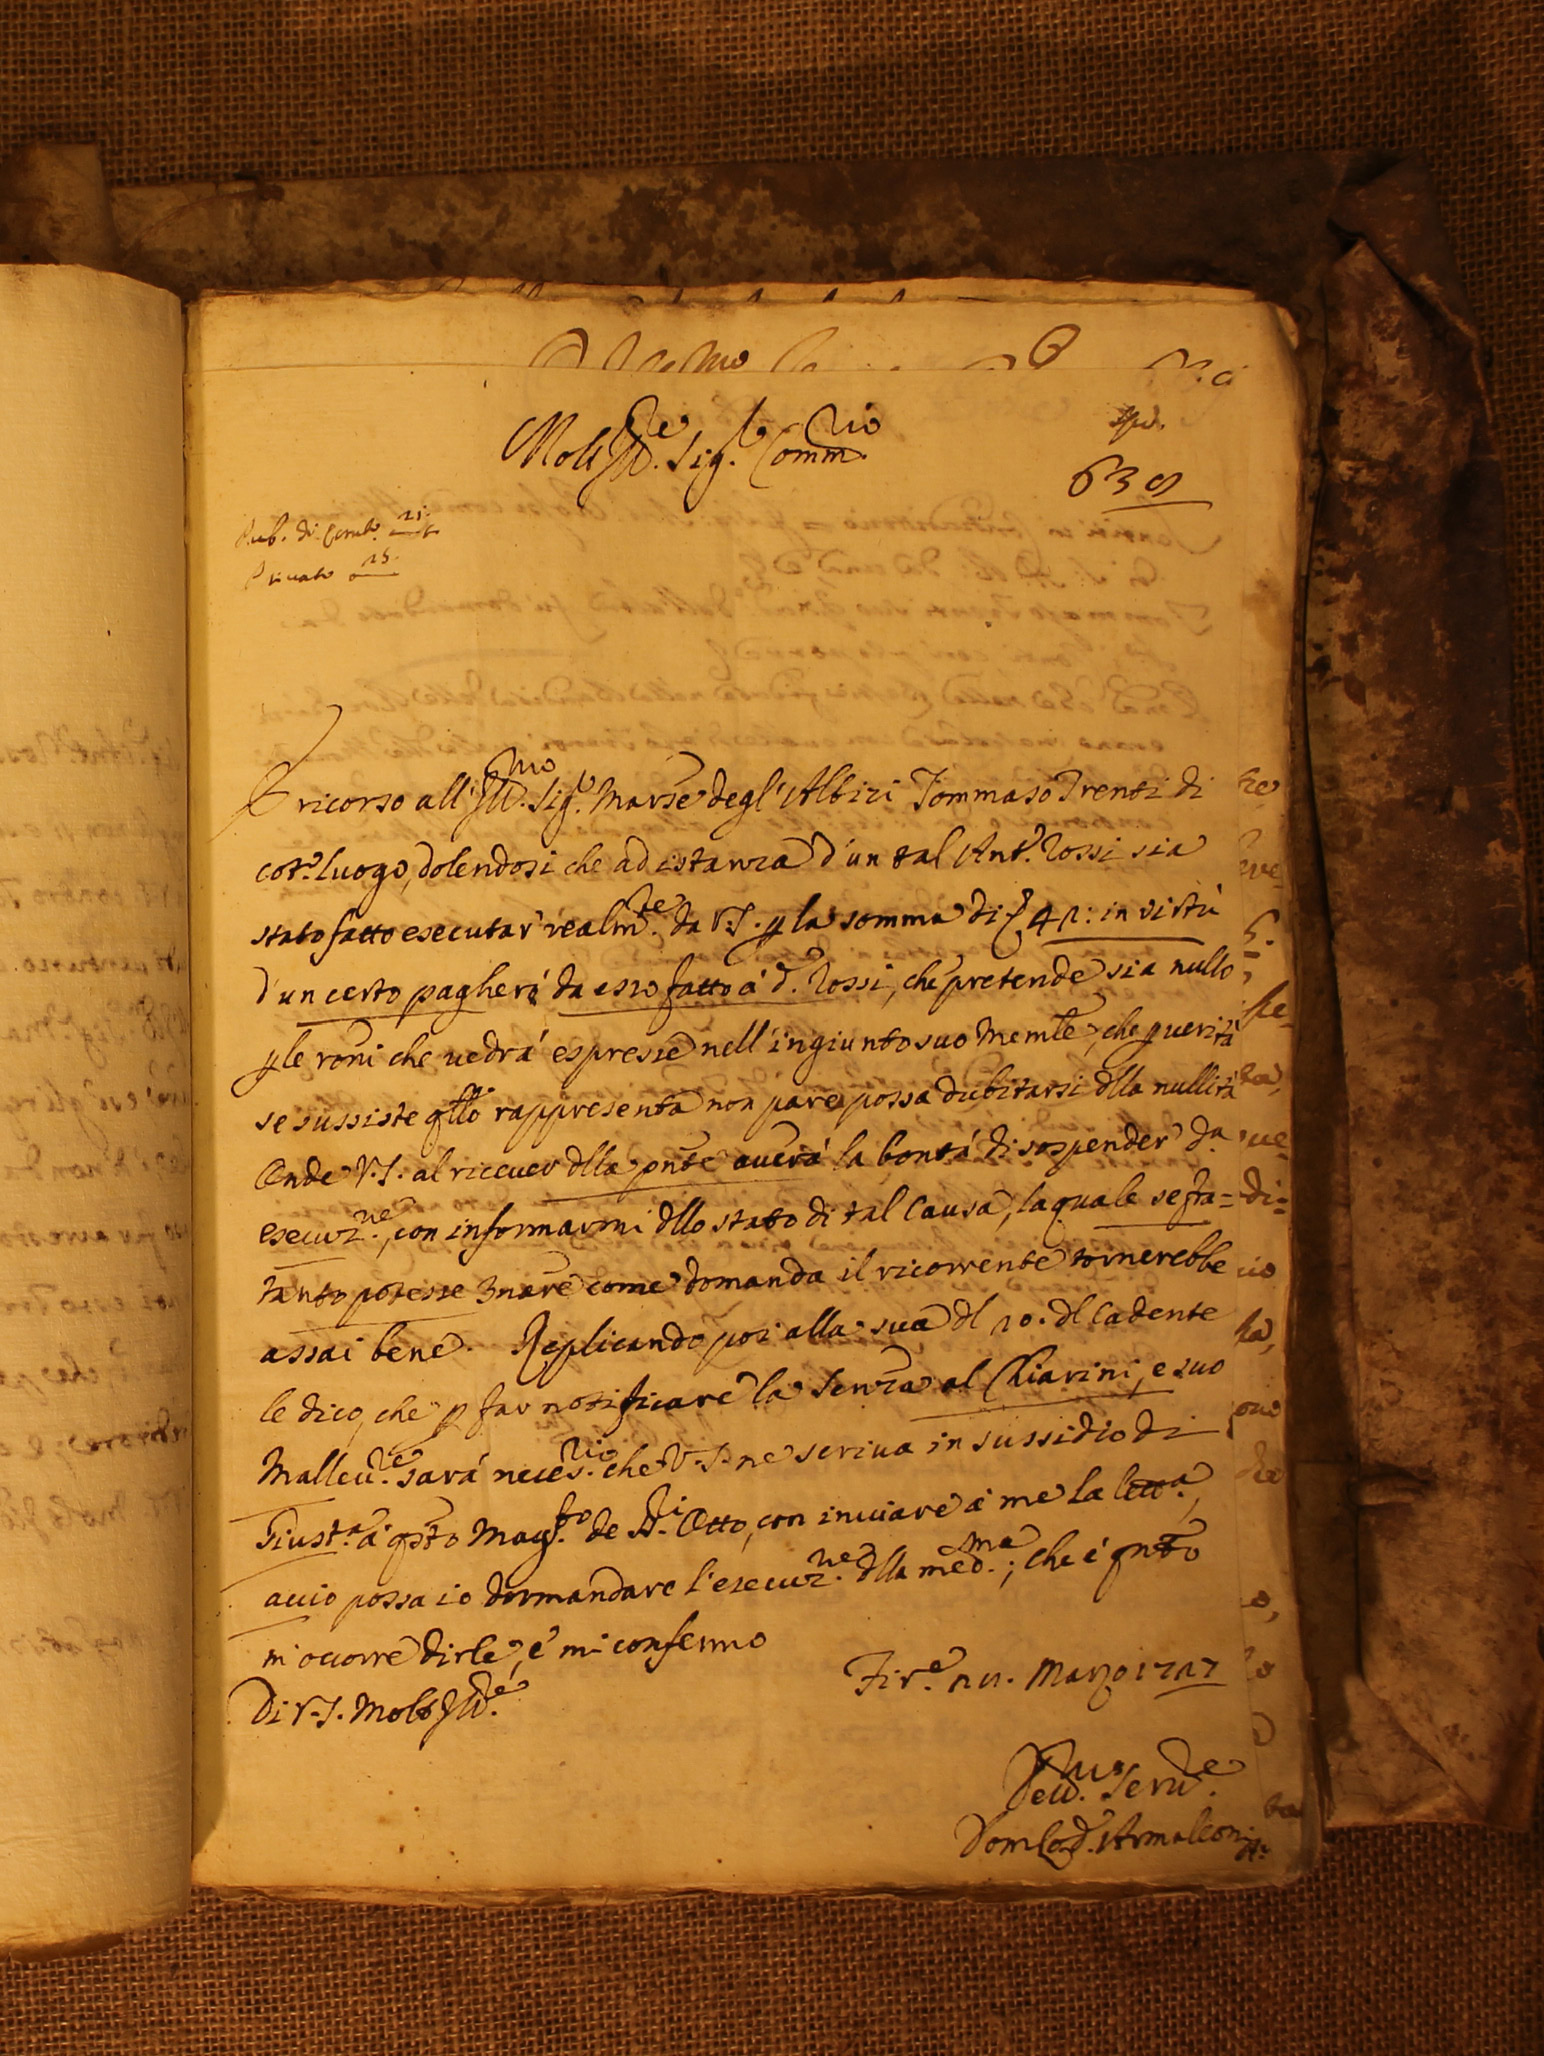 Molt Ill.re Sig.r Comm.rio
639
Pub. di Cemb.o 21
Privato 25
È ricorso all' Ill.mo Sig.r Marse degl' Albizi Tommaso Trenti di
cot.o luogo, dolendosi che ad istanza d'un tal Ant.o Rossi sia
stato fatto esecutar' realm.te da V.S. p la somma di 42: in virtù
d'un certo pagherò da esso fatto à d.o Rossi, che pretende sia nullo
p le roni che vedrà espresse nell' ingiunto suo Memle, che p verità
se sussiste qllo rappresenta non pare possa dubitarsi dlla nullità
Onde V.S. al ricever dlla pnte averà la bontà di sospender' da
esecuz.ne, con informarmi dllo stato di tal Causa, la quale se fra=
tanto potesse 3nare come domanda il ricorrente tornerebbe
assai bene. Replicando poi alla sua dl 20. dl Cadente
le dico, che p far notificare la Senza al Chiarini, e suo
Mallev.re sarà neces.rio che V.S. ne scriva in sussidio di
Giust.a à qsto Mag.to de SS.i Otto, con inviare à me la lett.a,
acciò possa io domandare l'esecuz.ne dlla med.ma; che è qnto
m' occorre dirle, e mi confermo
Di V.S. Molt Ill.re
Fir.e 22. Marzo 1717
Dev.mo Serv.re
Dom.co d. Armaleoni